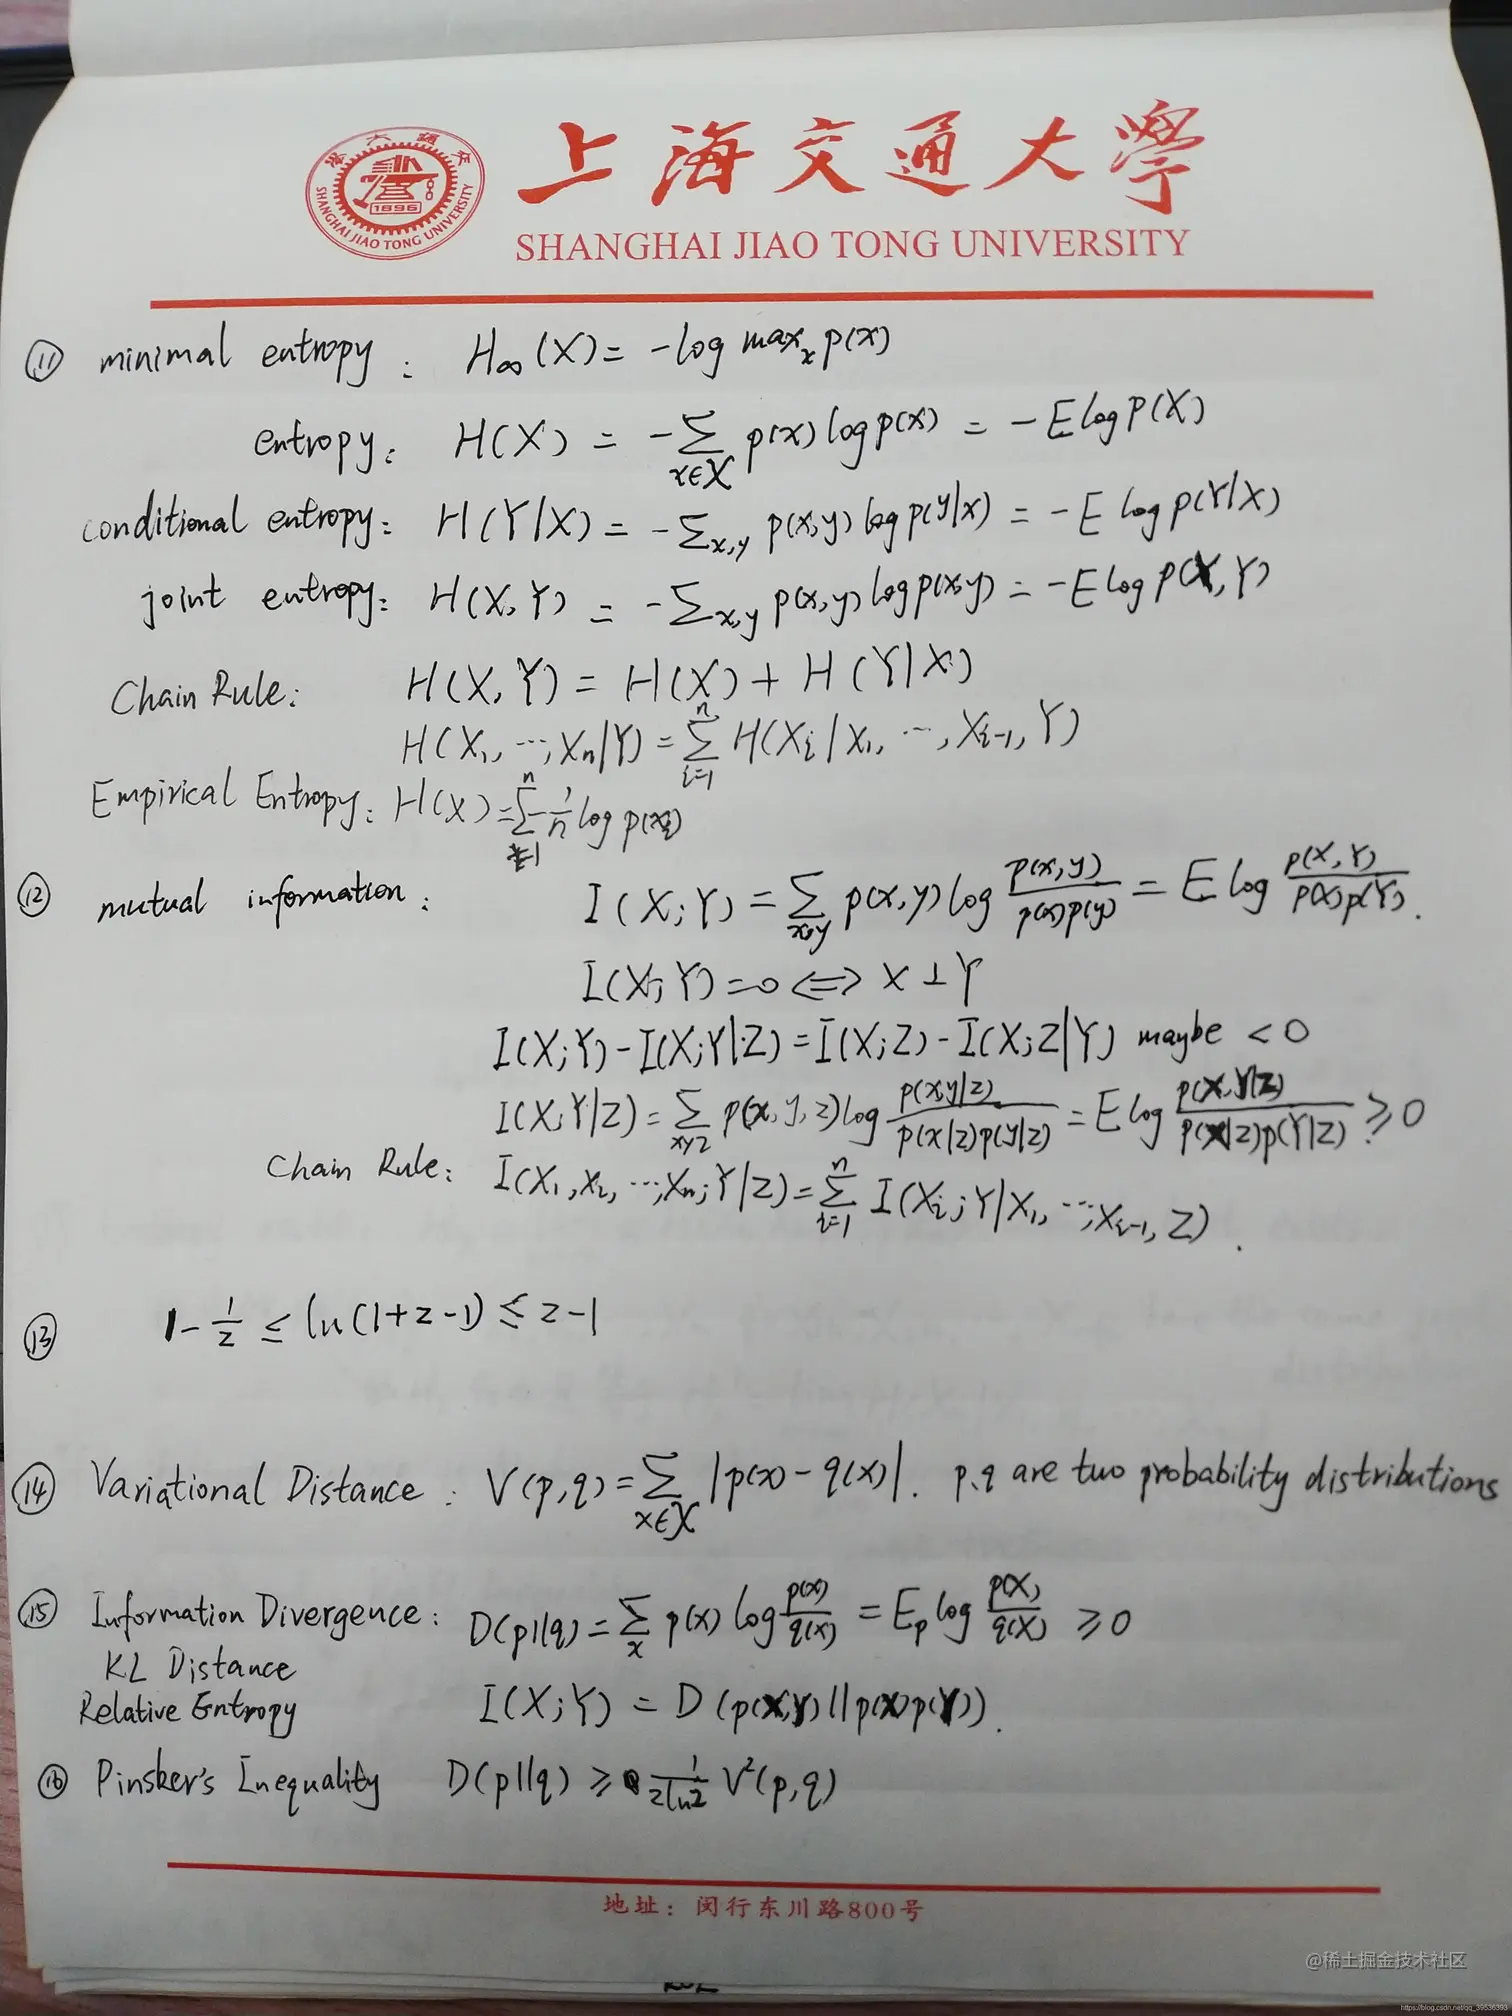 上海交通大學
SHANGHAI JIAO TONG UNIVERSITY
SHANGHAI JIAO TONG UNIVERSITY
1896
⑪ minimal entropy: H∞(X) = -log maxₓ p(x)
entropy: H(X) = -∑_{x∈X} p(x) log p(x) = -E log p(X)
conditional entropy: H(Y|X) = -∑_{x,y} p(x,y) log p(y|x) = -E log p(Y|X)
joint entropy: H(X,Y) = -∑_{x,y} p(x,y) log p(x,y) = -E log p(X,Y)
Chain Rule: H(X,Y) = H(X) + H(Y|X)
H(X₁, ..., Xₙ|Y) = ∑_{i=1}^{n} H(Xᵢ|X₁, ..., Xᵢ₋₁, Y)
Empirical Entropy: H(X) = ∑_{i=1}^{n} -1/n log p(xᵢ)
⑫ mutual information: I(X;Y) = ∑_{x,y} p(x,y) log p(x,y)/(p(x)p(y)) = E log p(X,Y)/(p(X)p(Y)).
I(X;Y) = 0 ⟺ X ⊥ Y
I(X;Y) - I(X;Y|Z) = I(X;Z) - I(X;Z|Y) maybe < 0
I(X;Y|Z) = ∑_{xyz} p(x,y,z) log p(x,y|z)/(p(x|z)p(y|z)) = E log p(X,Y|Z)/(p(X|Z)p(Y|Z)) ≥ 0
Chain Rule: I(X₁,X₂, ..., Xₙ;Y|Z) = ∑_{i=1}^{n} I(Xᵢ;Y|X₁, ..., Xᵢ₋₁, Z).
⑬ 1 - 1/z ≤ ln(1+z-1) ≤ z-1
⑭ Variational Distance: V(p,q) = ∑_{x∈X} |p(x) - q(x)|. p,q are two probability distributions
⑮ Information Divergence: D(p||q) = ∑ₓ p(x) log p(x)/q(x) = Eₚ log p(X)/q(X) ≥ 0
KL Distance
Relative Entropy I(X;Y) = D(p(X,Y)||p(X)p(Y)).
⑯ Pinsker's Inequality D(p||q) ≥ 1/(2ln2) V²(p,q)
地址：闵行东川路800号
@稀土掘金技术社区
https://blog.csdn.net/qq_39536398